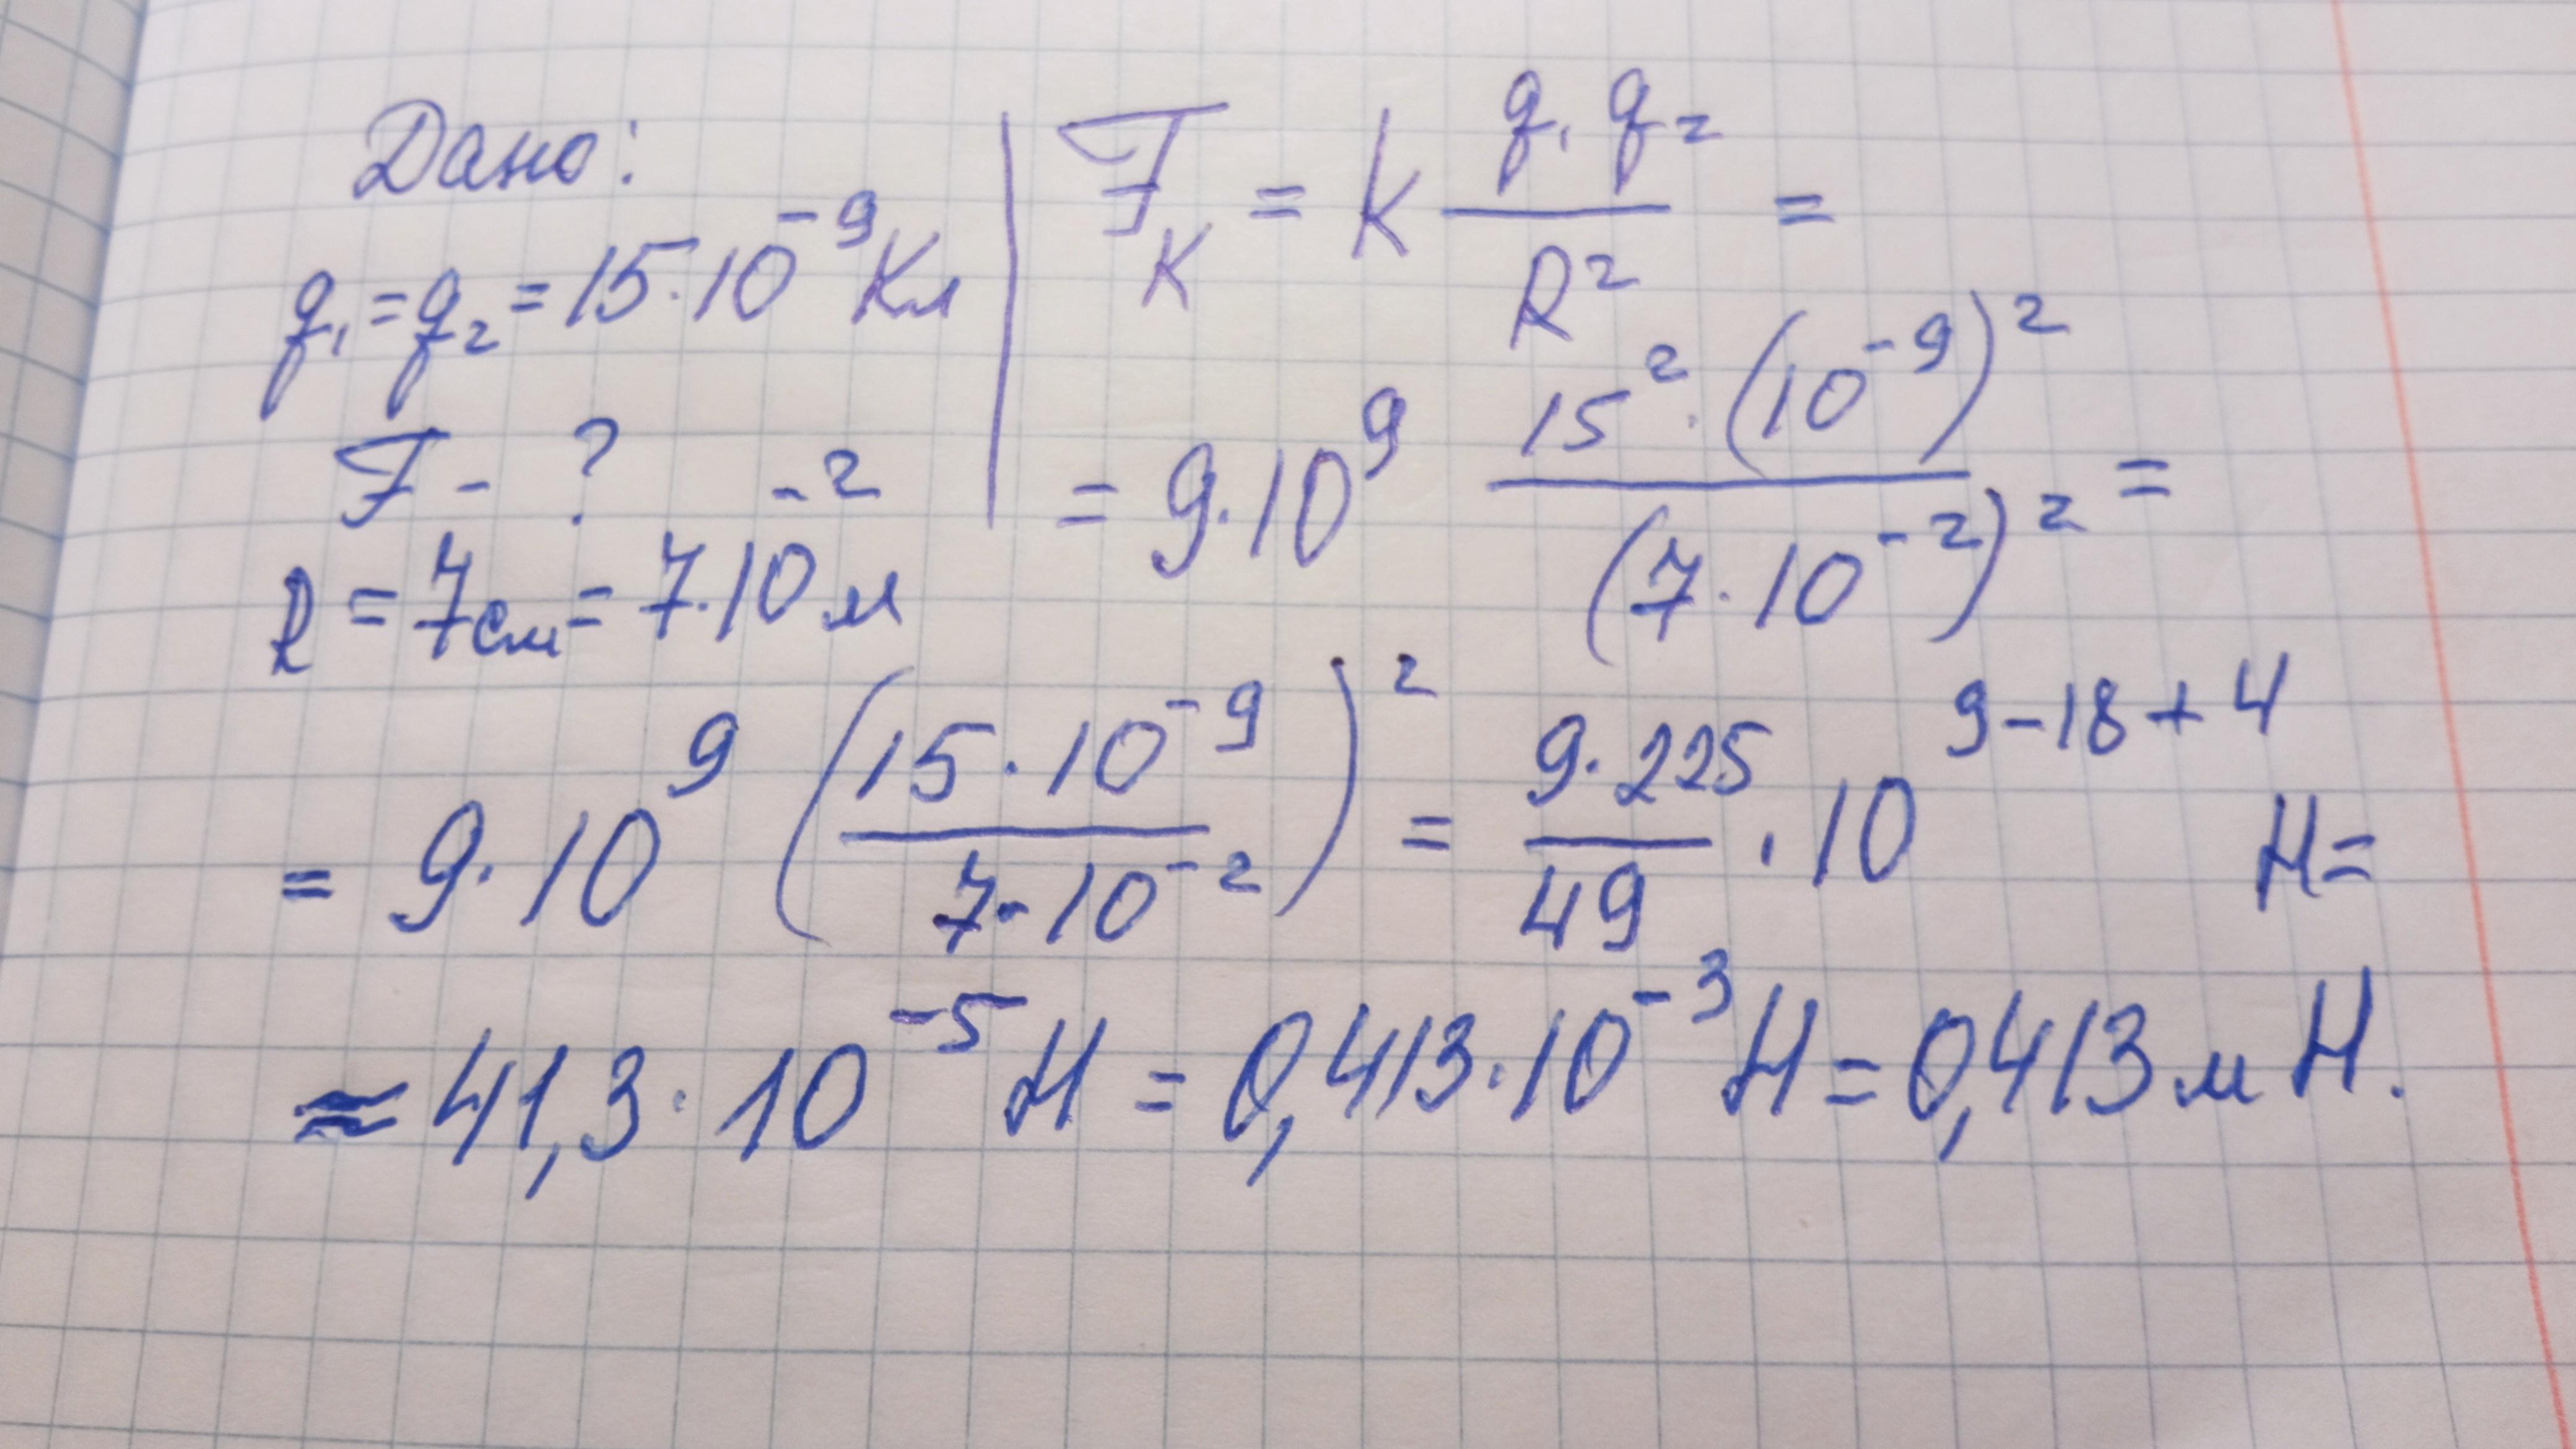 Дано:
q₁ = q₂ = 15·10⁻⁹ Кл
F - ?
R = 7см = 7·10⁻² м
F_K = k q₁ q₂ / R² =
= 9·10⁹ 15²·(10⁻⁹)² / (7·10⁻²)² =
= 9·10⁹ (15·10⁻⁹ / 7·10⁻²)² = 9·225 / 49 · 10⁹⁻¹⁸⁺⁴ Н =
≈ 41,3·10⁻⁵ Н = 0,413·10⁻³ Н = 0,413 мН.